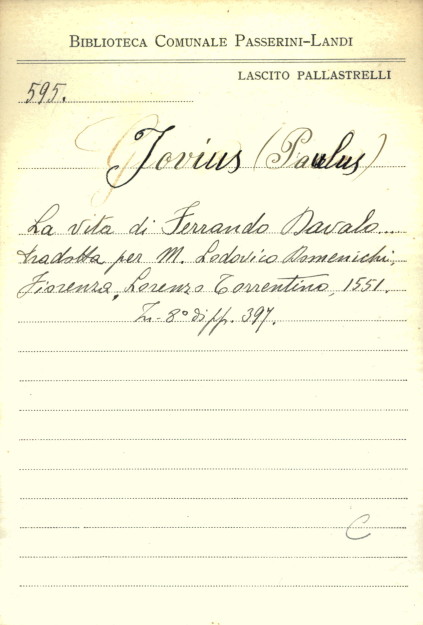 BIBLIOTECA COMUNALE PASSERINI-LANDI
LASCITO PALLASTRELLI
595.
Jovius (Paulus)
La vita di Ferrando Davalo...
tradotta per M. Lodovico Domenichi,
Fiorenza, Lorenzo Torrentino, 1551.
In-8° di pp. 397.
C